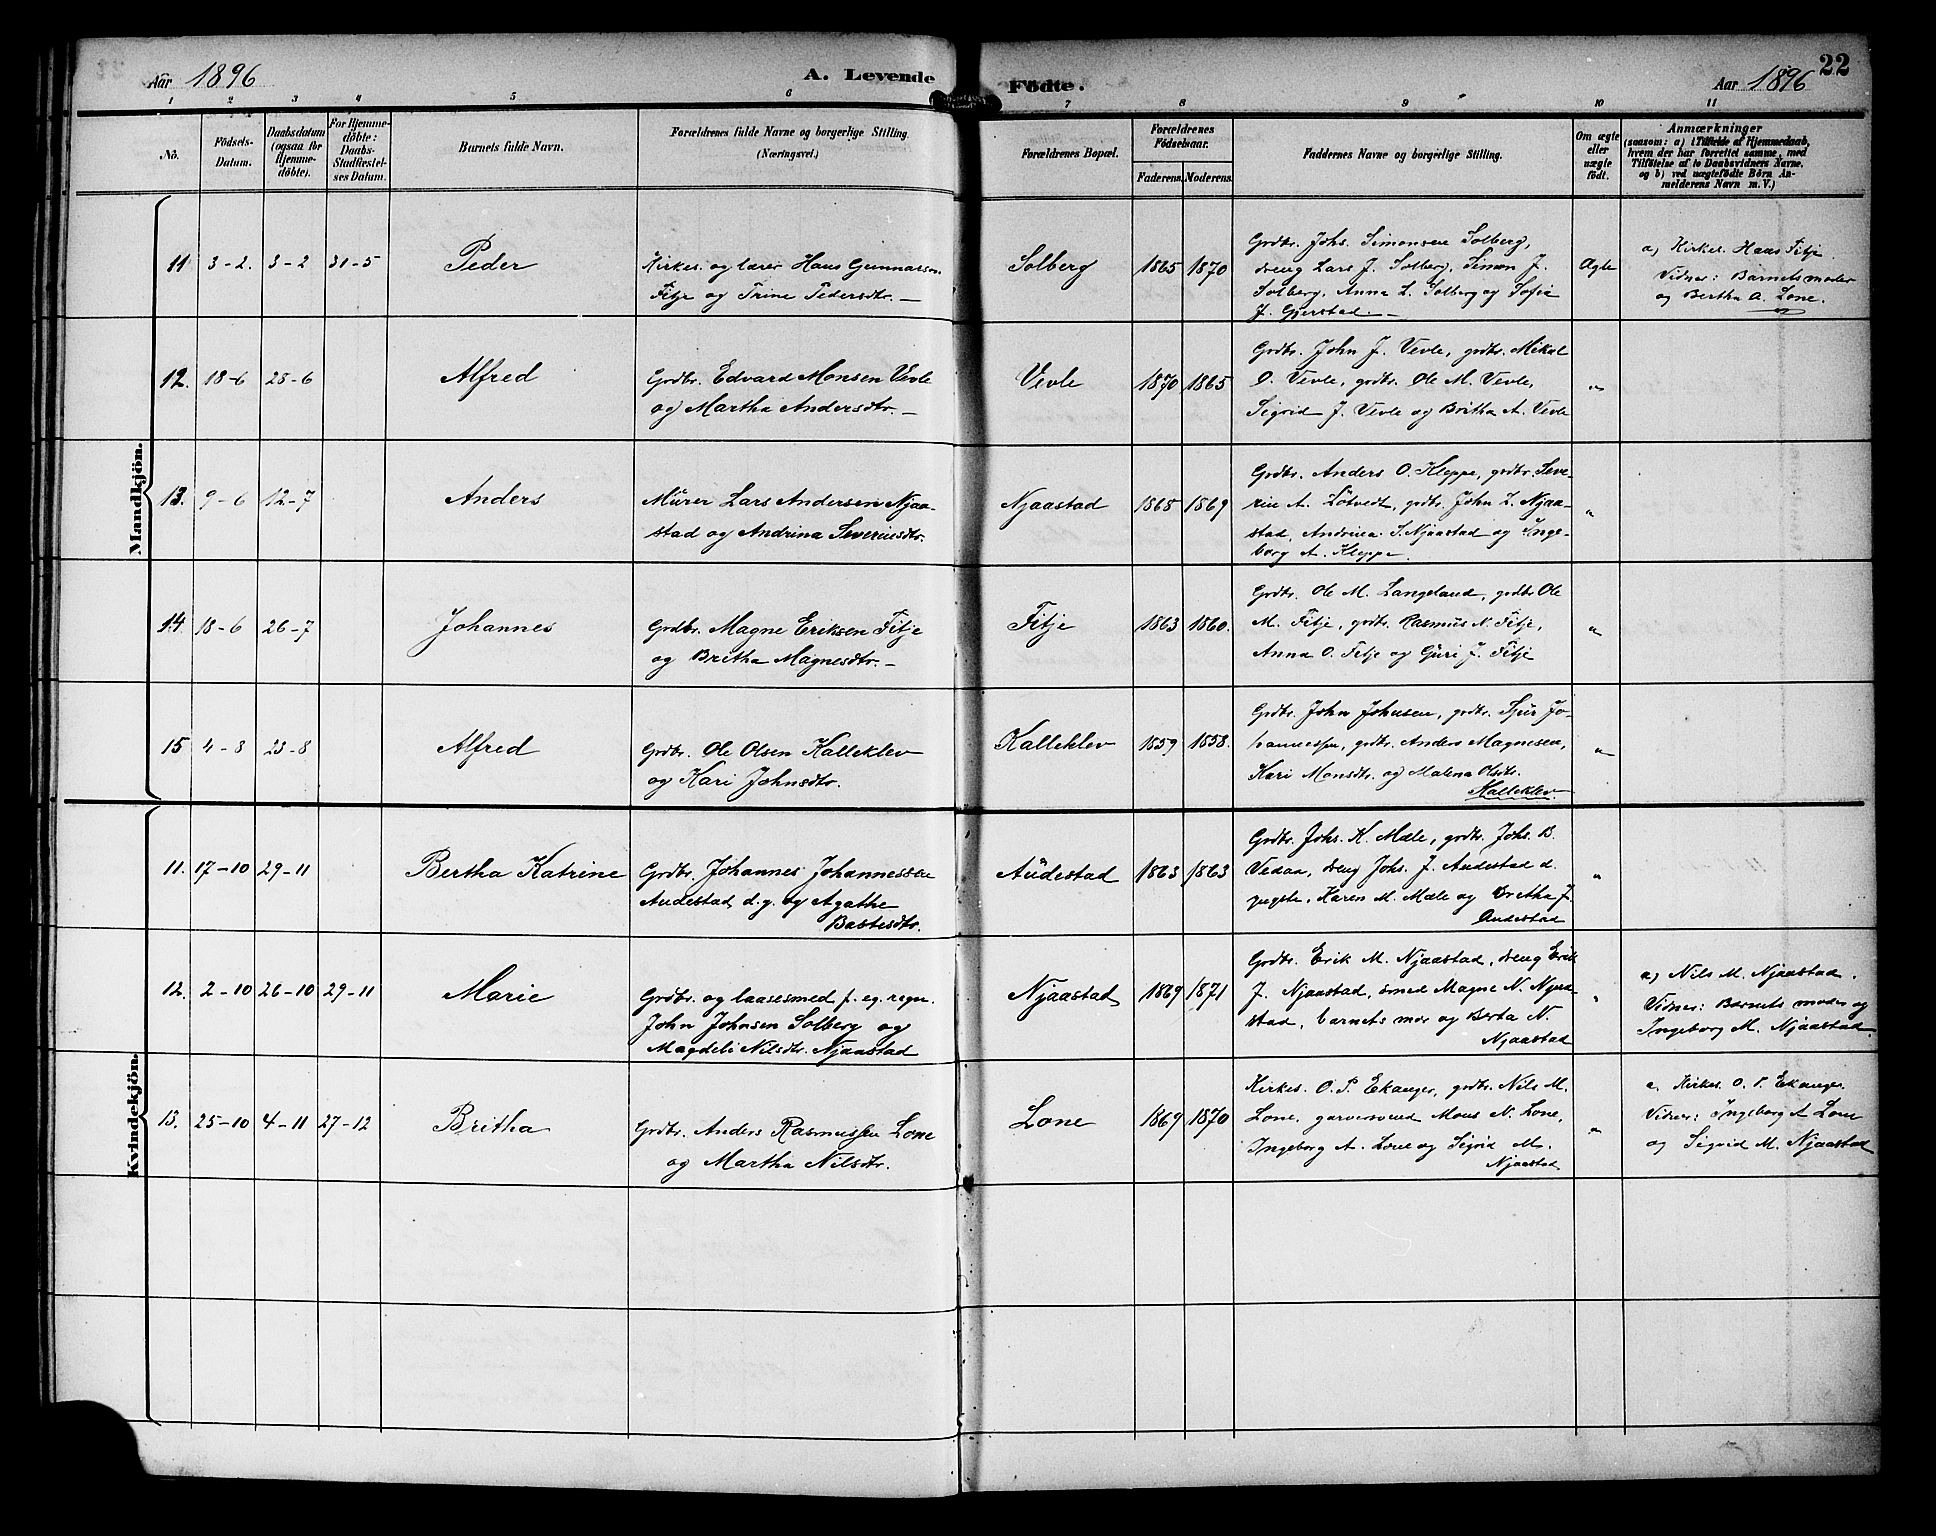 Aar 1896
A. Levende
Födte.
Aar 1896
22
1 2 3 4 5 6 7 8 9 10 11
No.
Födsels-
Datum.
Daabsdatum
(ogsaa for
Hjemme-
döbte).
For Hjemme-
döbte:
Daabs-
Stadfæstel-
ses Datum.
Barnets fulde Navn.
Forældrenes fulde Navne og borgerlige Stilling.
(Næringsvei.)
Forældrenes Bopæl.
Forældrenes
Födselsaar.
Faderens. Moderens.
Faddernes Navne og borgerlige Stilling.
Om ægte
eller
uægte
födt.
Anmærkninger
(saasom: a) i Tilfælde af Hjemmedaab,
hvem der har forrettet samme, med
Tilföielse af to Daabsvidners Navne,
og b) ved uægtefödte Börn An-
melderens Navn m. V.)
Mandkjön.
11 3-2. 3-2 31-5
Peder
Kirkes. og lærer Hans Gunnarsen
Fitje og Trine Pedersdtr. —
Solberg
1865 1870
Grdbr. Johs. Simonsen Solberg,
dreng Lars J. Solberg, Simon J.
Solberg, Anna L. Solberg og Sofia
J. Gjerstad. —
Ægte
a) Kirkes. Hans Fitje
Vidner: Barnets moder
og Bertha A. Lone.
12. 18-6 28-6
Alfred
Grdbr. Edvard Monsen Vevle
og Martha Andersdtr. —
Vevle
1870 1865
Grdbr. John J. Vevle, grdbr. Mikal
O. Vevle, grdbr. Ole M. Vevle,
Sigrid J. Vevle og Britha A. Vevle
"
13. 9-6 12-7
Anders
Murer Lars Andersen Njaa-
stad og Andrina Severinsdtr.
Njaastad
1868 1869
Grdbr. Anders O. Kleppe, grdbr. Seve-
rin A. Løtvedt, grdbr. John L. Njaa-
stad, Andrina S. Njaastad og Inge-
borg A. Kleppe.
"
14. 18-6 26-7
Johannes
Grdbr. Magne Eriksen Fitje
og Britha Magnesdtr. —
Fitje
1863 1860.
Grdbr. Ole M. Langeland, grdbr. Ole
M. Fitje, grdbr. Rasmus N. Fitje,
Anna O. Fitje og Guri J. Fitje
"
15 4-8 23-8
Alfred
Grdbr. Ole Olsen Kalleklev
og Kari Johnsdtr.
Kalleklev
1859 1858.
Grdbr. John Johnsen, grdbr. Sjur Jo-
hannessen, grdbr. Anders Magnesen,
Kari Monsdtr. og Malena Olsdtr.
Kalleklev.
"
Kvindekjön.
11. 17-10 29-11
Bertha Katrine
Grdbr. Johannes Johannessen
Audestad d. y. og Agathe
Bastesdtr.
Audestad
1863 1863
Grdbr. Johs. K. Mæle, grdbr. Johs. B.
Vedaa, dreng Johs. J. Audestad d.
yngste, Karen M. Mæle og Britha J.
Audestad
"
12. 2-10 26-10 29-11
Marie
Grdbr. og laasesmed f. eg. regn.
John Johnsen Solberg og
Magdeli Nilsdtr. Njaastad
Njaastad
1869 1871
Grdbr. Erik M. Njaastad, dreng Erik
J. Njaastad, smed Magne N. Njaa-
stad, barnets mor og Berta N.
Njaastad
"
a) Nils M. Njaastad.
Vidner: Barnets moder og
Ingeborg M. Njaastad.
13. 25-10 4-11 27-12
Britha
Grdbr. Anders Rasmussen Lone
og Martha Nilsdtr.
Lone
1869 1870
Kirkes. O. P. Ekanger, grdbr. Nils M.
Lone, garversvend Mons N. Lone,
Ingeborg A. Lone og Sigrid M.
Njaastad
"
a. Kirkes. O. P. Ekanger.
Vidner: Ingeborg A Lone
og Sigrid M. Njaastad